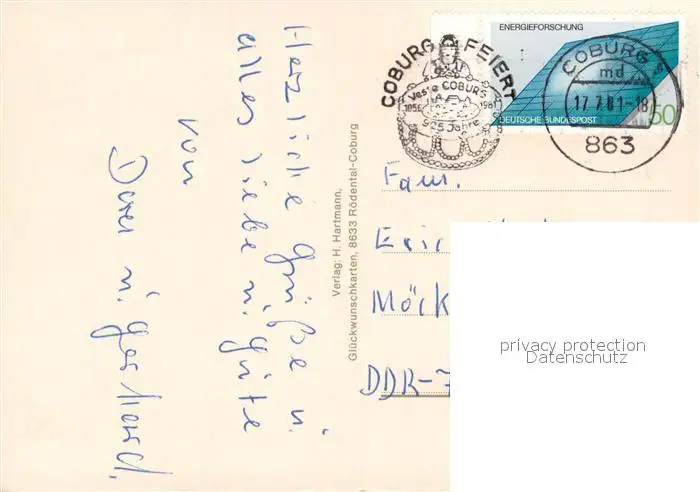 ENERGIEFORSCHUNG
DEUTSCHE BUNDESPOST
50
COBURG FEIERT
Veste COBURG
1056 1981
925 Jahre
COBURG
md
17.7.81-18
863
Herzliche Grüße u.
alles Liebe u. Gute
von
u.
Verlag: H. Hartmann,
Glückwunschkarten, 8633 Rödental-Coburg
Fam.
Möck
DDR-7
privacy protection
Datenschutz